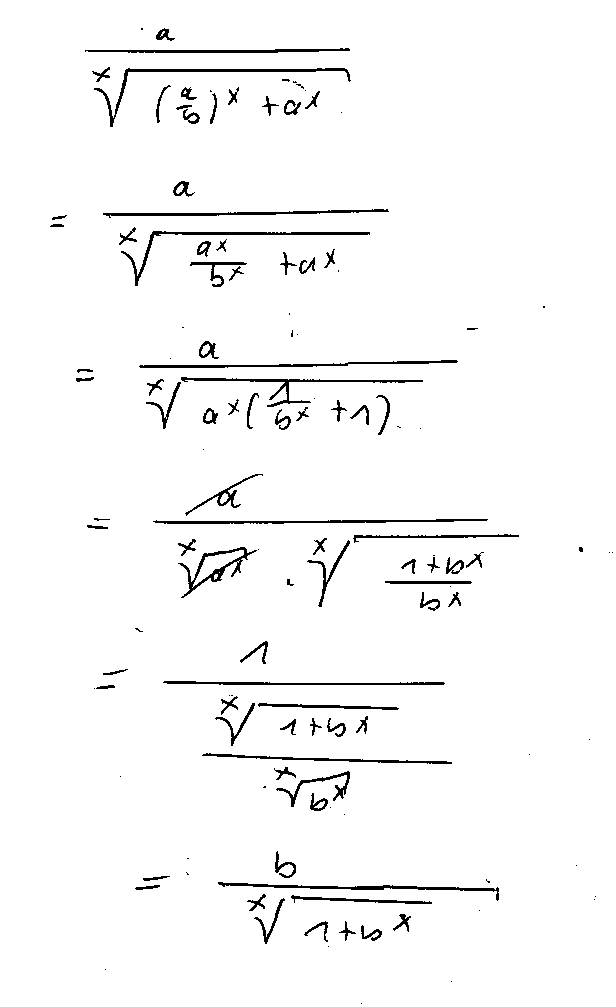 a / ˣ√((a/b)ˣ + aˣ)
= a / ˣ√(aˣ/bˣ + aˣ)
= a / ˣ√(aˣ(1/bˣ + 1))
= a / (ˣ√(aˣ) · ˣ√((1+bˣ)/bˣ))
= 1 / (ˣ√(1+bˣ) / ˣ√(bˣ))
= b / ˣ√(1+bˣ)